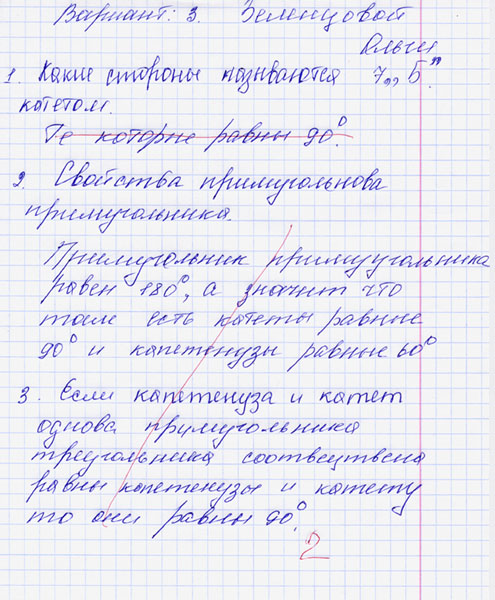 Вариант: 3. Зеленцовой
Ольги
1. Какие стороны называются 7„Б”
катетом.
Те которые равны 90°.
2. Свойства примугольнова
примугольника.
Примугольник примуугольника
равен 180°, а значит что
там есть катеты равные
90° и капетенузы равные 60°
3. Если капетенуза и катет
однова прумугольника
треугольника соотвецтвена
равны капетенузы и катету
то они равны 90°.
2